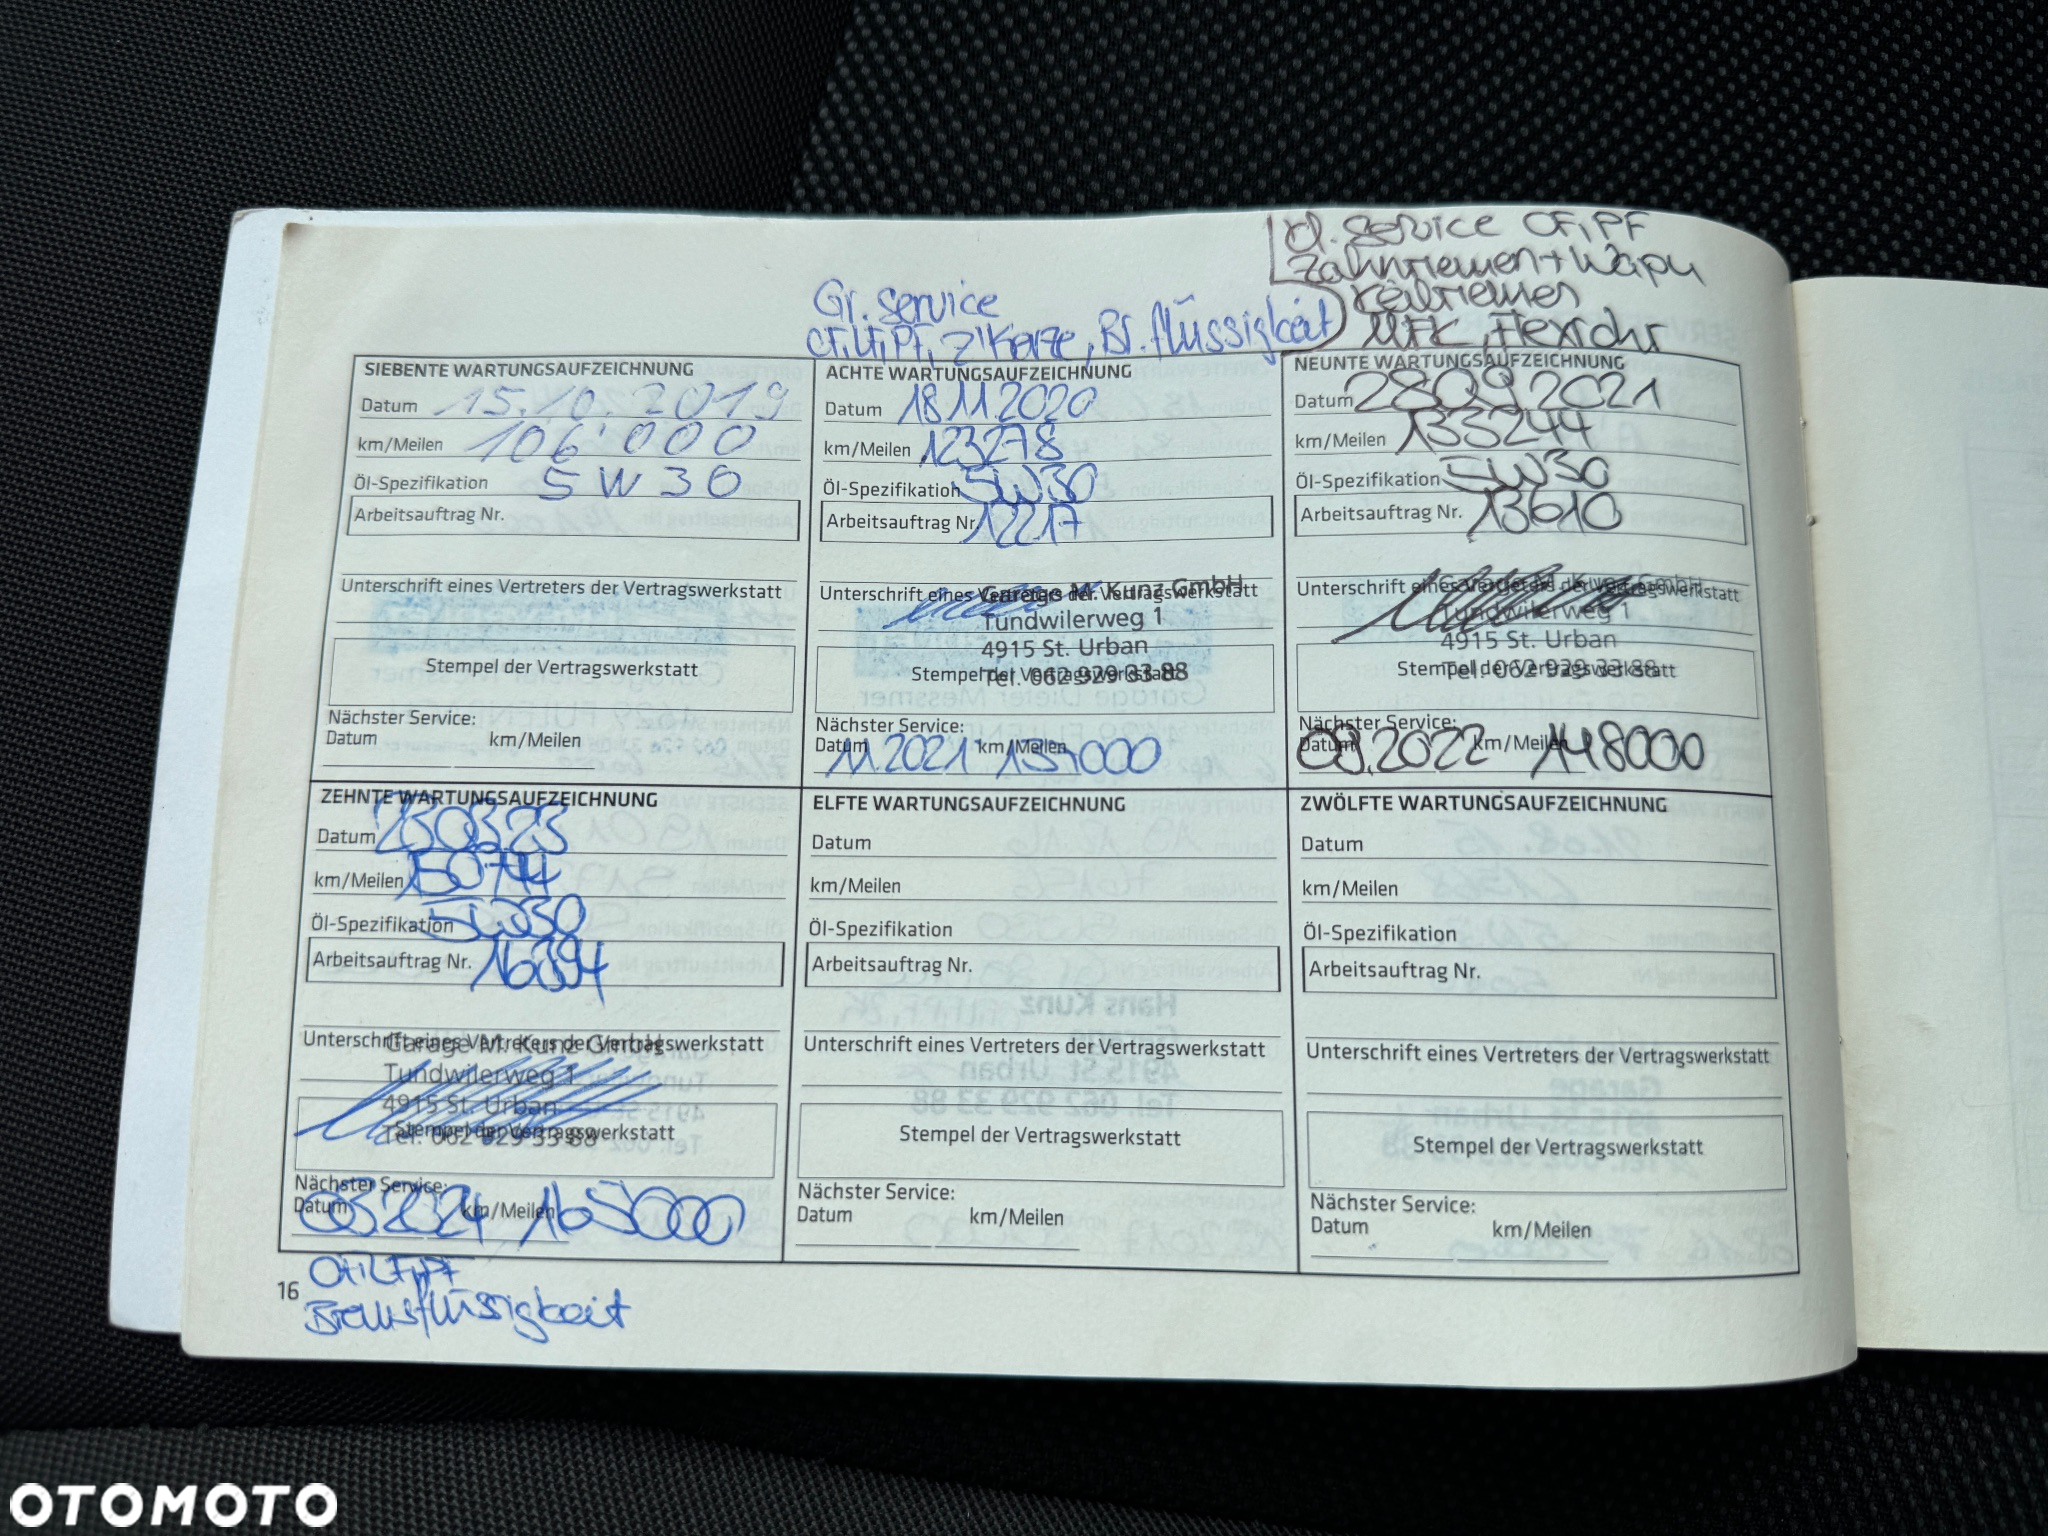 kl. Service ÖF, PF
Zahnriemen + Wapu
Keilriemen
MFK, Flexrohr
Gr. Service
ÖF, LF, PF, Z'Kerze, Br. flüssigkeit
SIEBENTE WARTUNGSAUFZEICHNUNG
Datum 15.10.2019
km/Meilen 106'000
Öl-Spezifikation 5W30
Arbeitsauftrag Nr.
Unterschrift eines Vertreters der Vertragswerkstatt
Stempel der Vertragswerkstatt
Nächster Service:
Datum km/Meilen
ACHTE WARTUNGSAUFZEICHNUNG
Datum 18.11.2020
km/Meilen 123278
Öl-Spezifikation 5W30
Arbeitsauftrag Nr. 12217
Unterschrift eines Vertreters der Vertragswerkstatt
Garage M. Kunz GmbH
Tundwilerweg 1
4915 St. Urban
Stempel der Vertragswerkstatt
Tel. 062 929 33 88
Nächster Service:
Datum 11.2021 km/Meilen
NEUNTE WARTUNGSAUFZEICHNUNG
Datum 28.09.2021
km/Meilen 133244
Öl-Spezifikation 5W30
Arbeitsauftrag Nr. 13610
Unterschrift eines Vertreters der Vertragswerkstatt
Garage M. Kunz GmbH
Tundwilerweg 1
4915 St. Urban
Stempel der Vertragswerkstatt
Tel. 062 929 33 88
Nächster Service:
Datum 09.2022 km/Meilen 148000
ZEHNTE WARTUNGSAUFZEICHNUNG
Datum 23.03.23
km/Meilen 150744
Öl-Spezifikation 5W30
Arbeitsauftrag Nr. 16394
Unterschrift eines Vertreters der Vertragswerkstatt
Garage M. Kunz GmbH
Tundwilerweg 1
4915 St. Urban
Stempel der Vertragswerkstatt
Tel. 062 929 33 88
Nächster Service:
Datum km/Meilen 165000
ÖF, LF, PF
Bremsflüssigkeit
ELFTE WARTUNGSAUFZEICHNUNG
Datum
km/Meilen
Öl-Spezifikation
Arbeitsauftrag Nr.
Unterschrift eines Vertreters der Vertragswerkstatt
Stempel der Vertragswerkstatt
Nächster Service:
Datum km/Meilen
ZWÖLFTE WARTUNGSAUFZEICHNUNG
Datum
km/Meilen
Öl-Spezifikation
Arbeitsauftrag Nr.
Unterschrift eines Vertreters der Vertragswerkstatt
Stempel der Vertragswerkstatt
Nächster Service:
Datum km/Meilen
16
OTOMOTO